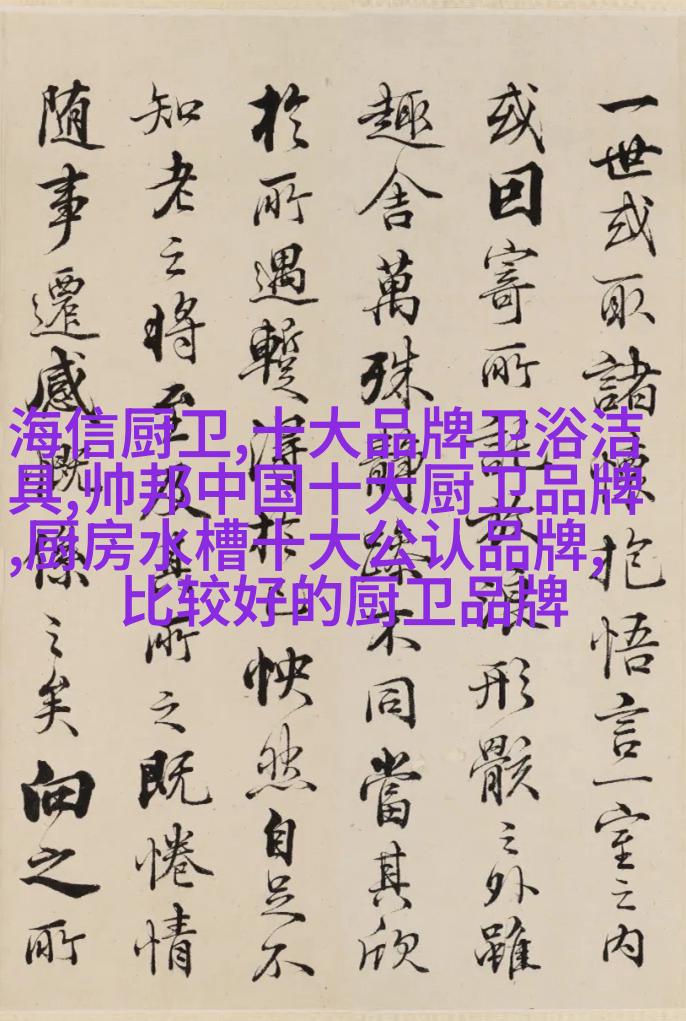 一世或取諸懷抱悟言一室之內
或因寄所託放浪形骸之外雖
趣舍萬殊靜躁不同當其欣
於所遇蹔得於己怏然自足不
知老之將至及其所之既惓情
随事遷感慨係之矣向之所
海信厨卫,十大品牌卫浴洁
具,帅邦中国十大厨卫品牌
,厨房水槽十大公认品牌,
比较好的厨卫品牌